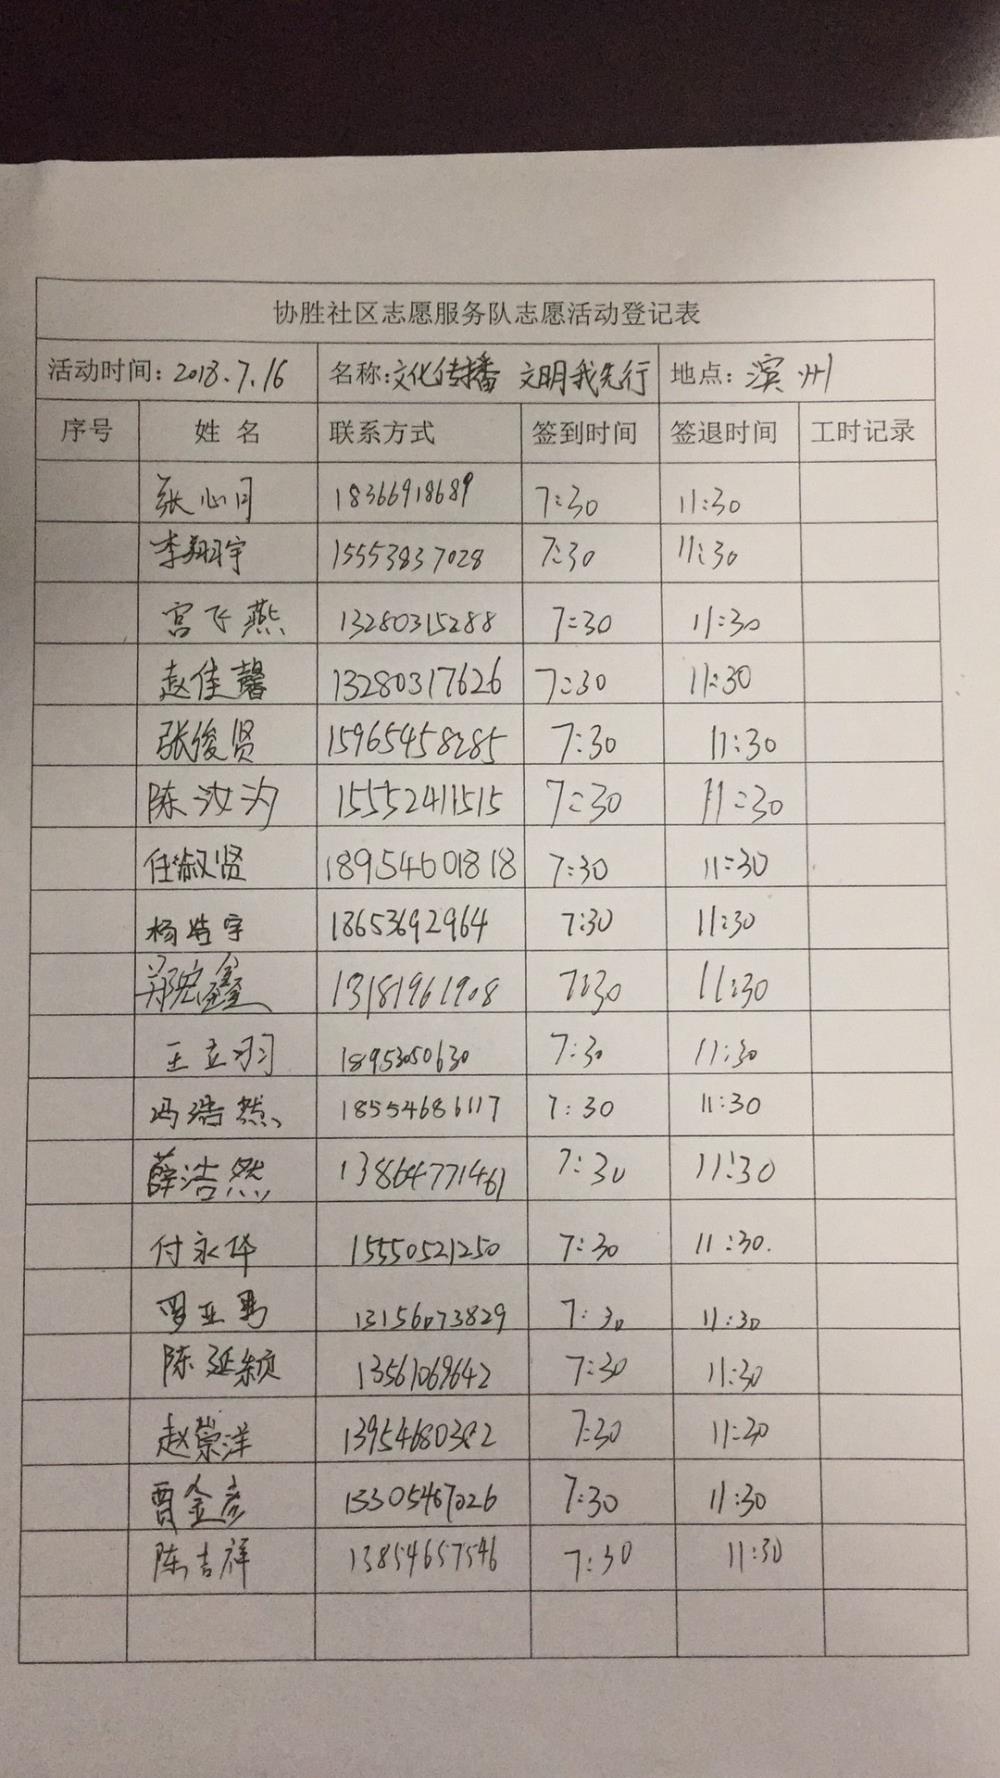 协胜社区志愿服务队志愿活动登记表
活动时间：2018.7.16 名称：文化传播 文明我先行 地点：滨州
序号 姓名 联系方式 签到时间 签退时间 工时记录
张心月 18366918689 7:30 11:30
李翔宇 15553837028 7:30 11:30
宫飞燕 13280315288 7:30 11:30
赵佳馨 13280317626 7:30 11:30
张俊贤 15965458285 7:30 11:30
陈汝汐 15552411515 7:30 11:30
任淑贤 18954601818 7:30 11:30
杨皓宇 18653692964 7:30 11:30
郑宏鑫 13181961908 7:30 11:30
王立羽 18953050630 7:30 11:30
冯浩然 18554686117 7:30 11:30
薛浩然 13864771461 7:30 11:30
付永华 15550521250 7:30 11:30.
罗亚男 13156073829 7:30 11:30
陈延颖 13561069642 7:30 11:30
赵崇洋 13954680382 7:30 11:30
曹金彦 13305467026 7:30 11:30
陈吉祥 13854657546 7:30 11:30